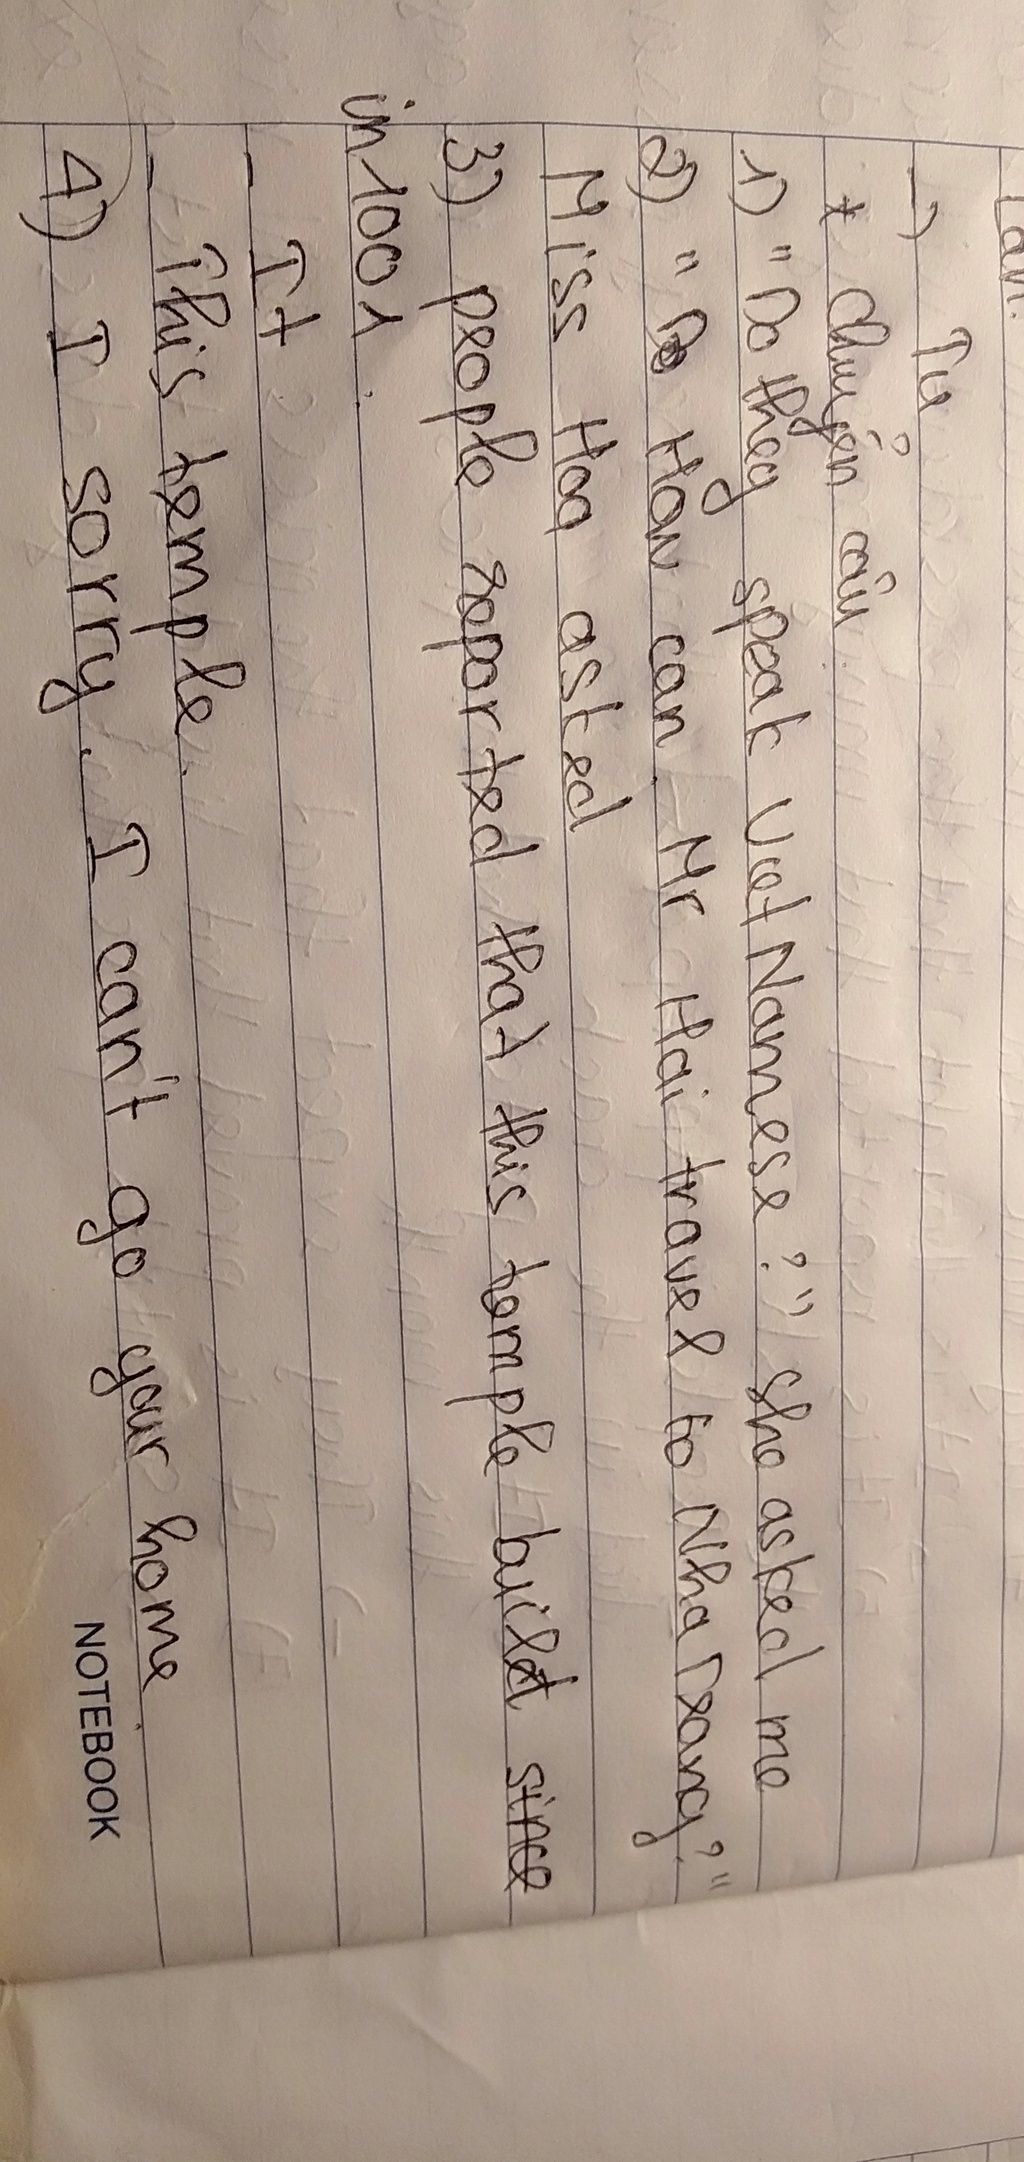 → Tu
* chuyển câu
1) "Do they speak VietNamese?" she asked me
2) " How can Mr Hai travel to Nha Trang?"
Miss Hoa asked
3) people reported that this temple built since
in 1001.
- It
- This temple.
4) I sorry. I can't go your home.
NOTEBOOK